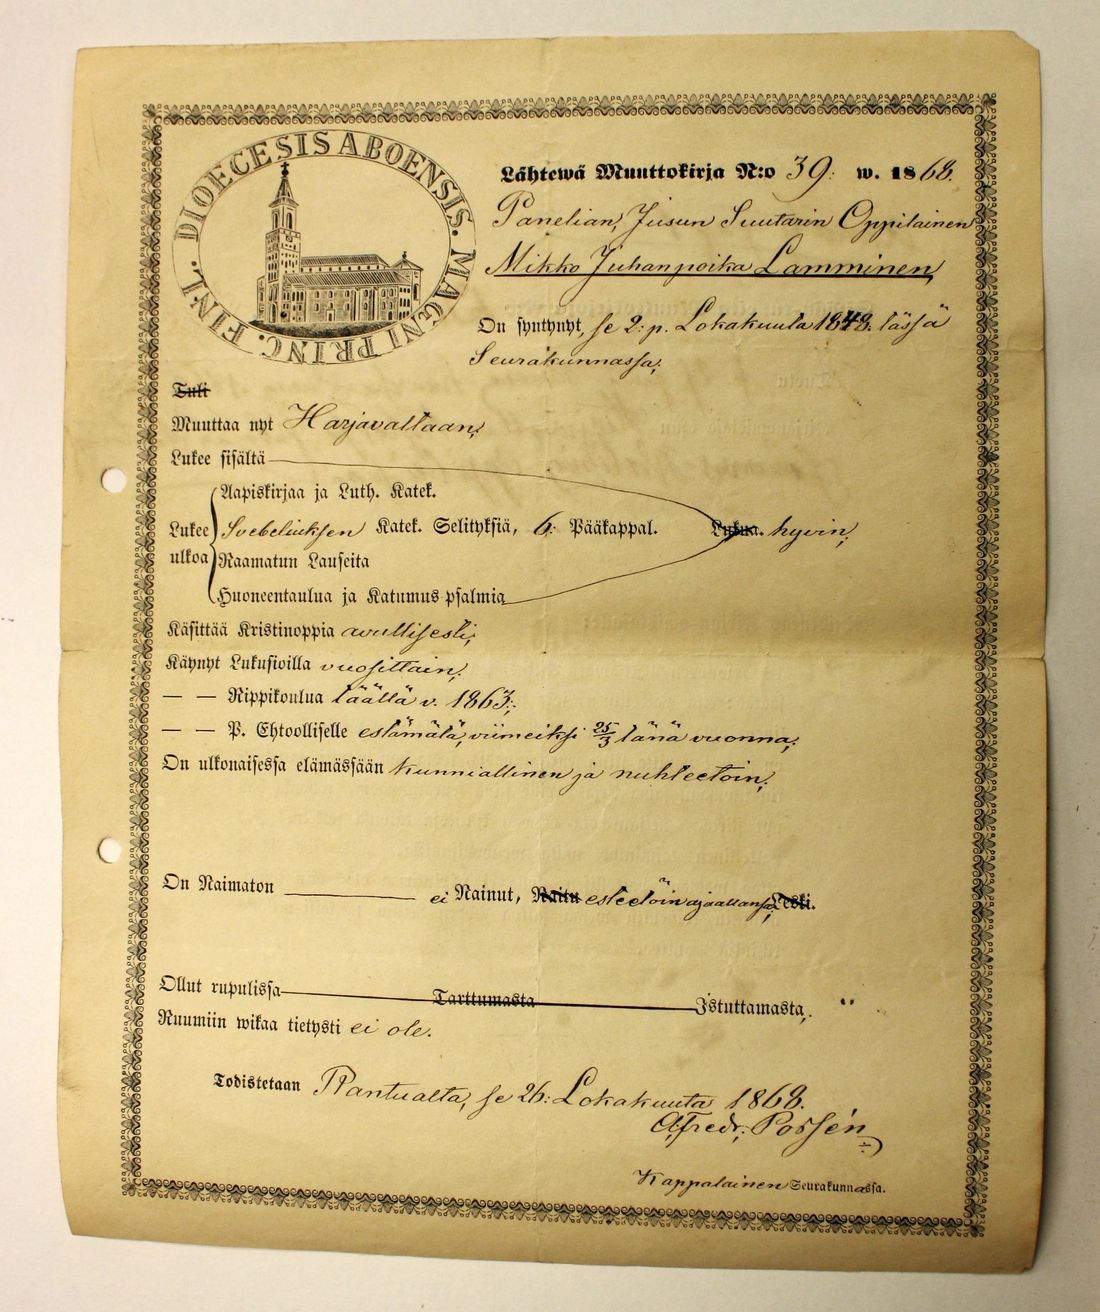 DIOECESIS ABOENSIS. MAGNI PRINC. FINL.
Lähtewä Muuttokirja N:o 39: w. 1868.
Panelian, Jusun Suutarin Oppilainen
Mikko Juhanpoika Lamminen,
On syntynyt, se 2: p. Lokakuuta 1848. tässä
Seurakunnassa,
Tuli
Muuttaa nyt Harjavaltaan,
Lukee sisältä
Aapiskirjaa ja Luth. Katek.
Lukee Svebeliuksen Katek. Selityksiä, 6. Pääkappal. Lukua. hyvin,
ulkoa Raamatun Lauseita
Huoneentaulua ja Katumus-psalmia
Käsittää Kristinoppia avullisesti,
Käynyt Lukusioilla vuosittain,
— — Rippikoulua täällä v. 1863,
— — P. Ehtoolliselle estämätä, viimeiksi 25/3 tänä vuonna,
On ulkonaisessa elämässään kunniallinen ja nuhteetoin,
On Naimaton ei Nainut, Naitu esteetöin ajaallansa, Leski.
Ollut rupulissa Tarttumasta Istuttamasta, "
Ruumiin wikaa tietysti ei ole.
Todistetaan Rantualta, se 26: Lokakuuta 1868.
Alfredr. Possén
Kappalainen Seurakunnassa.